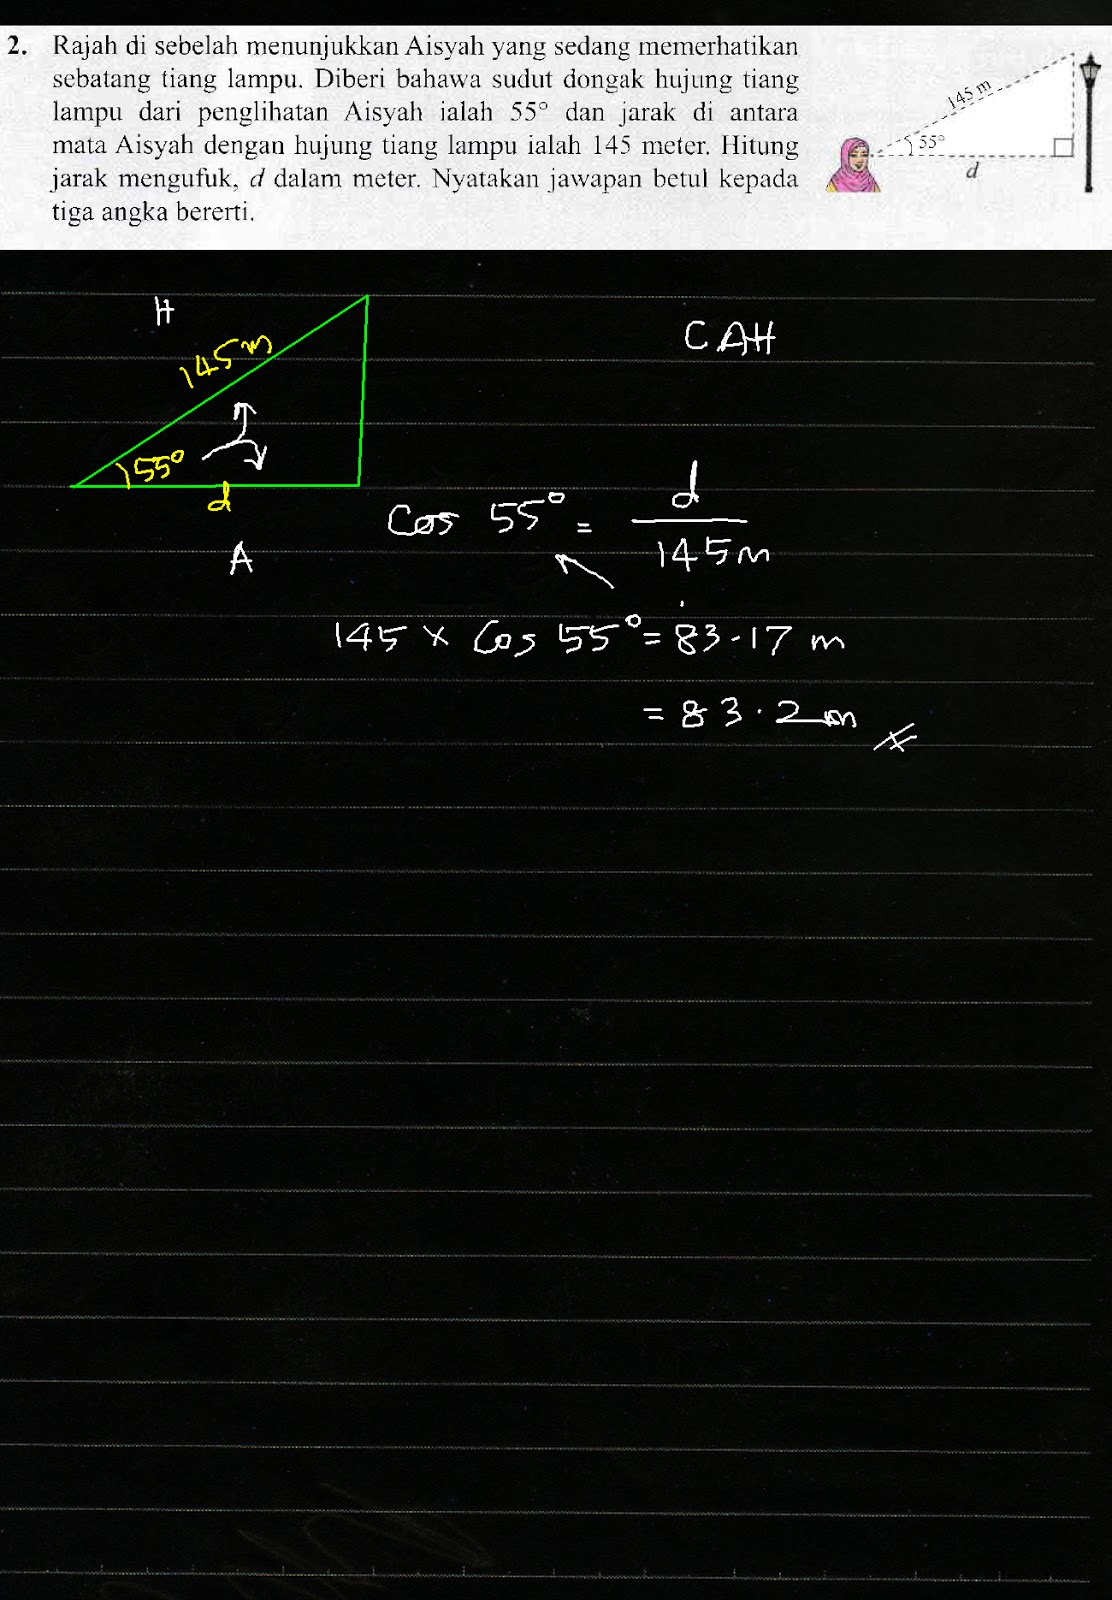 2. Rajah di sebelah menunjukkan Aisyah yang sedang memerhatikan
sebatang tiang lampu. Diberi bahawa sudut dongak hujung tiang
lampu dari penglihatan Aisyah ialah 55° dan jarak di antara
mata Aisyah dengan hujung tiang lampu ialah 145 meter. Hitung
jarak mengufuk, d dalam meter. Nyatakan jawapan betul kepada
tiga angka bererti.
145 m
55°
d
H
145 m
55°
d
A
CAH
Cos 55° = d
145 m
145 × Cos 55° = 83.17 m
= 83.2 m